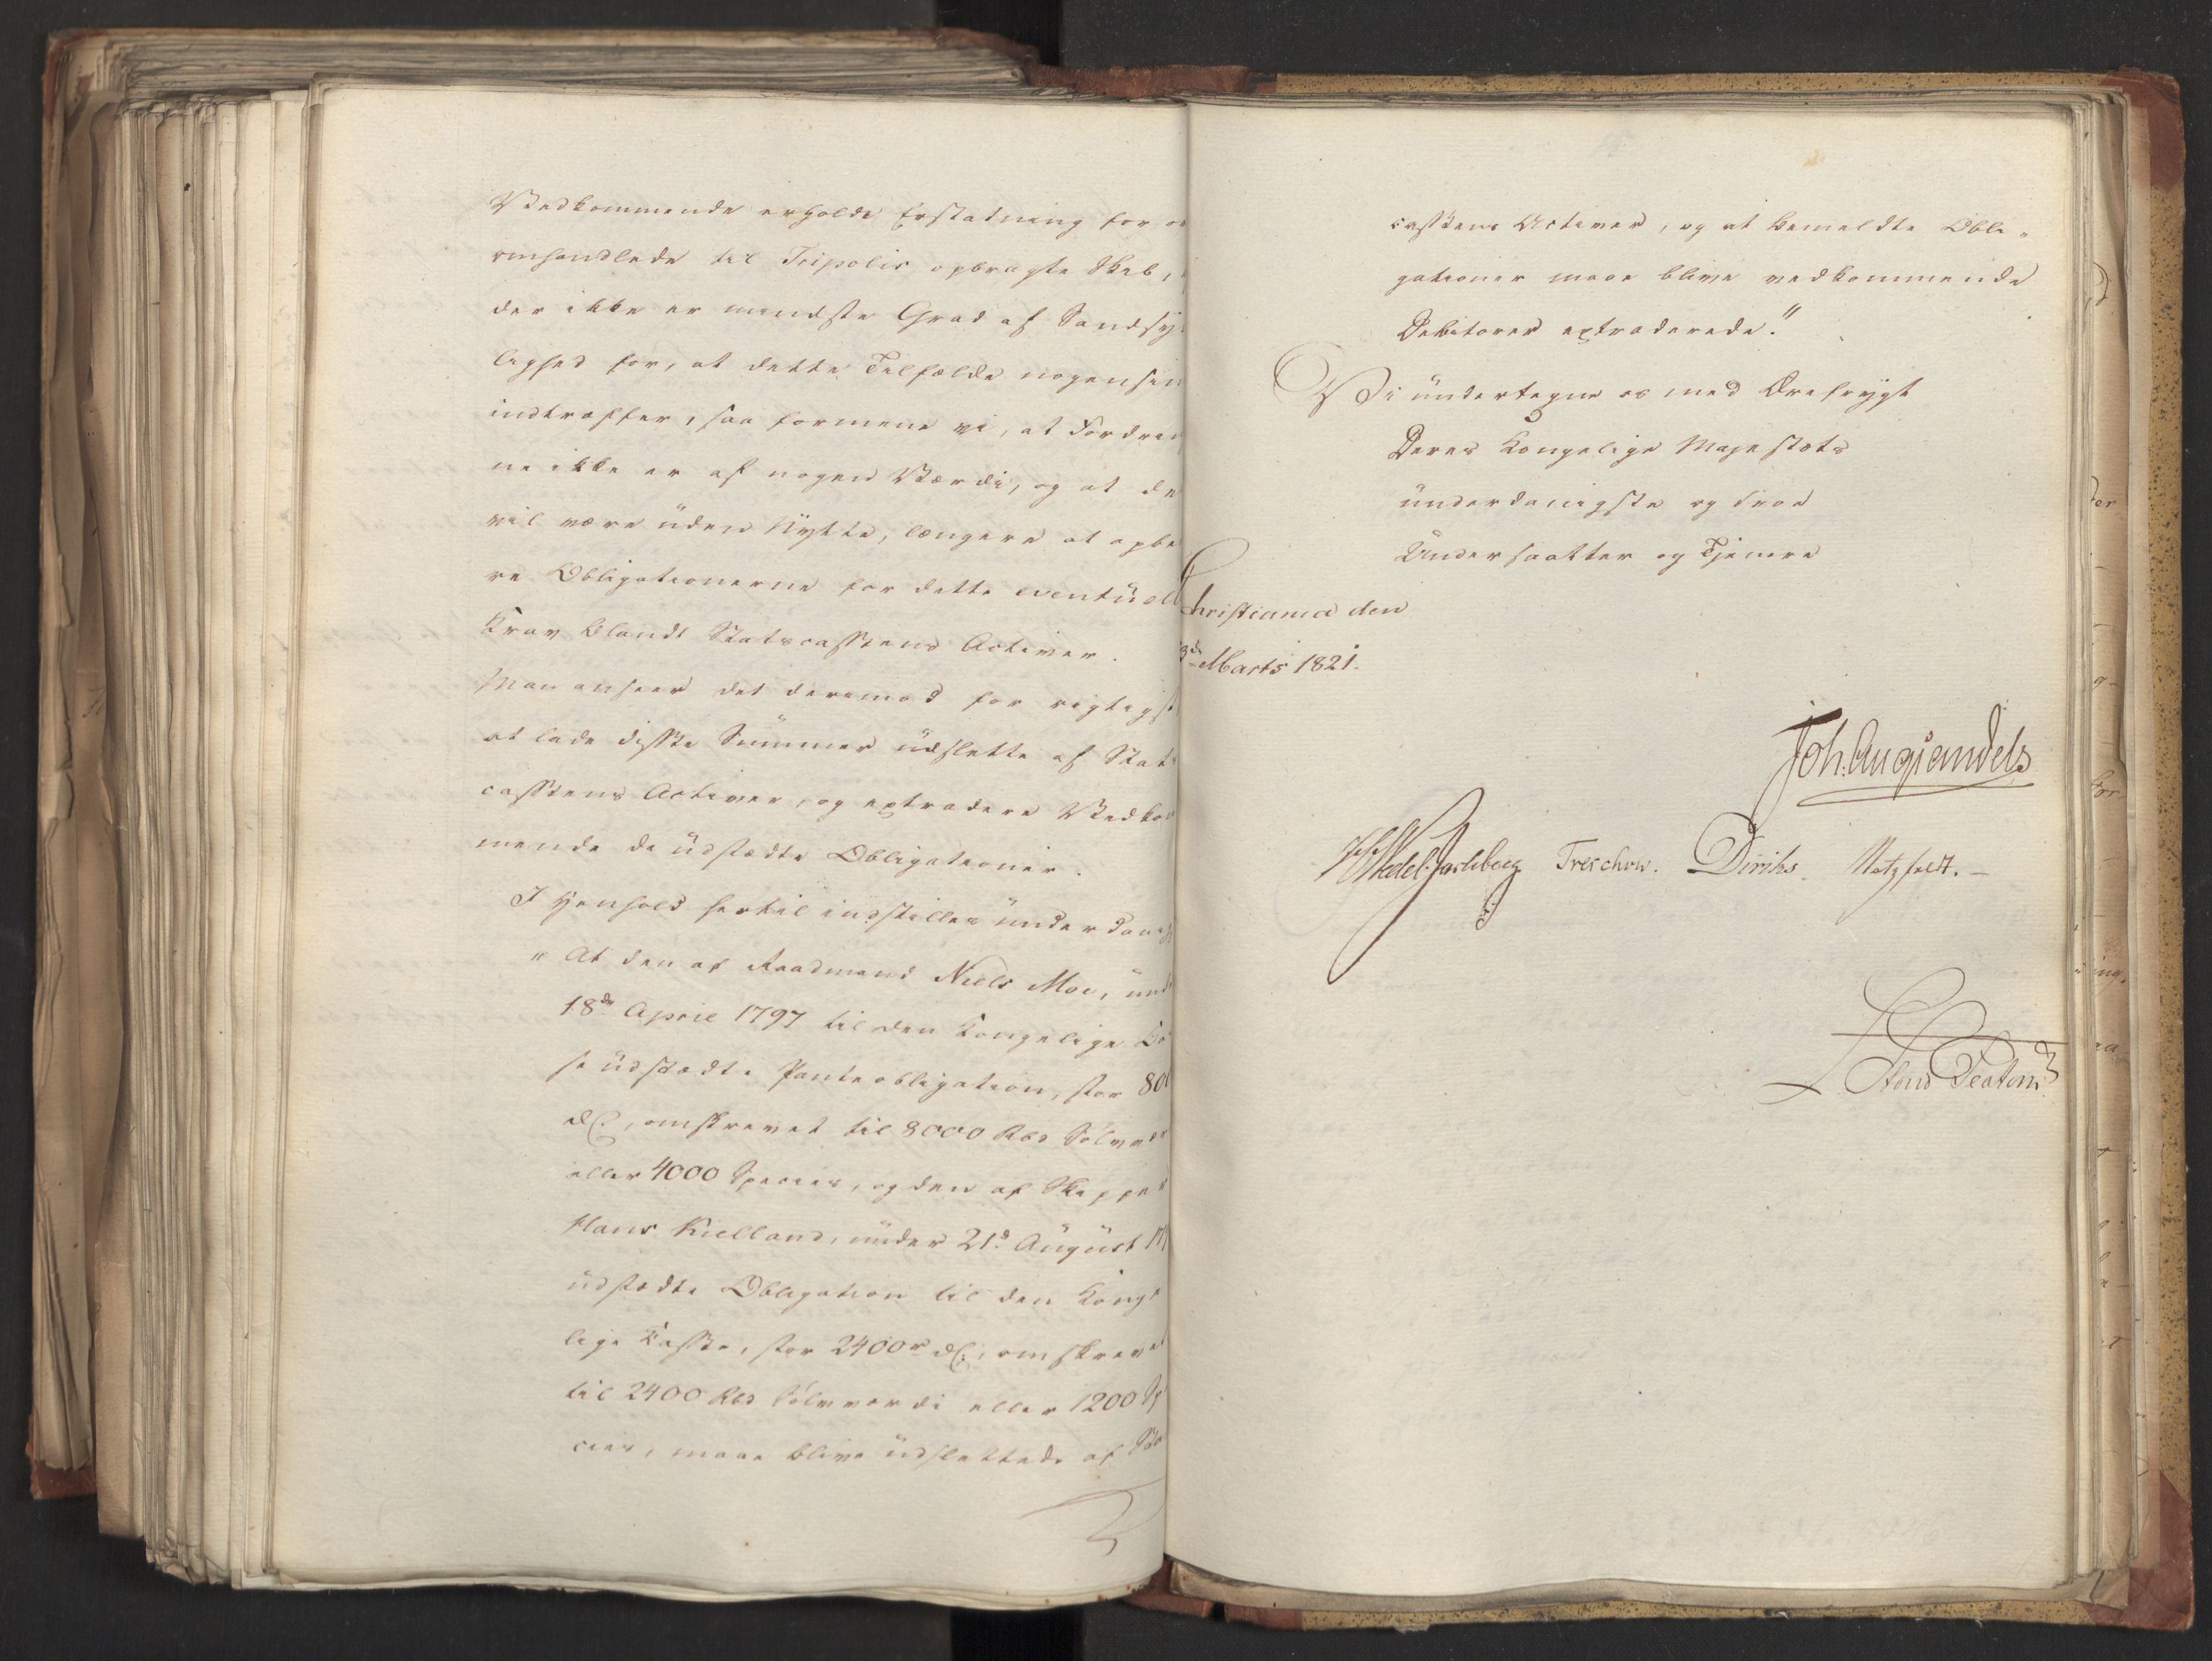 Vedkommende erholde Erstatning for o
omhandlede til Tripolis opbragte Skib,
der ikke er mindste Grad af Sandsy
lighed for, at dette Tilfælde nogensin
indtræffer, saa formene vi, at Fordrin
ne ikke er af nogen Værdi, og at de
vil være uden Nytte, længere at opbe
re Obligationerne for dette eventuel
Krav blandt Statscassens Activer.
Man anseer det derimod for rigtigst
at lade disse Summer udslette af Stats
cassens Activer, og extradere Vedkom
mende de udstædte Obligationer.
I Henhold hertil indstilles underdanigst
"At den af Raadmand Niels Moe, und
18de April 1797 til den Kongelige Ca
se udstædte Panteobligation, stor 800
rdl:, omskrevet til 8000 Rbd Sølvværd
eller 4000 Species, og den af Skipper
Hans Kielland, under 21d August 17
udstædte Obligation til den Konge
lige Casse, stor 2400 rdl:, omskrevet
til 2400 Rbd Sølvværdi eller 1200 Sp
cies, maae blive udslettede af Sta
cassens Activer, og at bemeldte Obli-
gationer maae blive vedkommende
Debitorer extraderede."
Vi undertegne os med Ærefrygt
Deres Kongelige Majestæts
underdanigste og troe
Undersaatter og Tjenere
Christiania den
3de Marts 1821.
Joh: Aug: Sandels
H Wedel-Jarlsberg Treschow. Diriks. Motzfeldt.